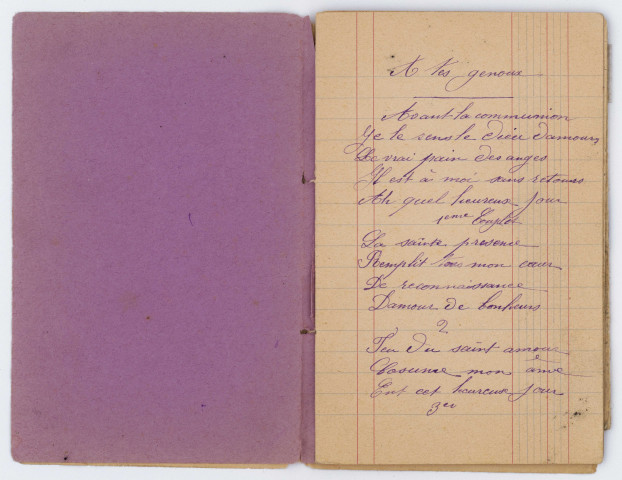 A tes genoux
Avant la communion
Je le sens le Dieu d'amour
Le vrai pain des anges
Il est à moi sans retours
Ah quel heureux jour
1eme Couplet
La sainte presence
Remplit tous mon cœur
De reconnaissance
D'amour de bonheurs
2
Feu du saint amour
Cosume mon âme
Ent cet heureux jour
3er